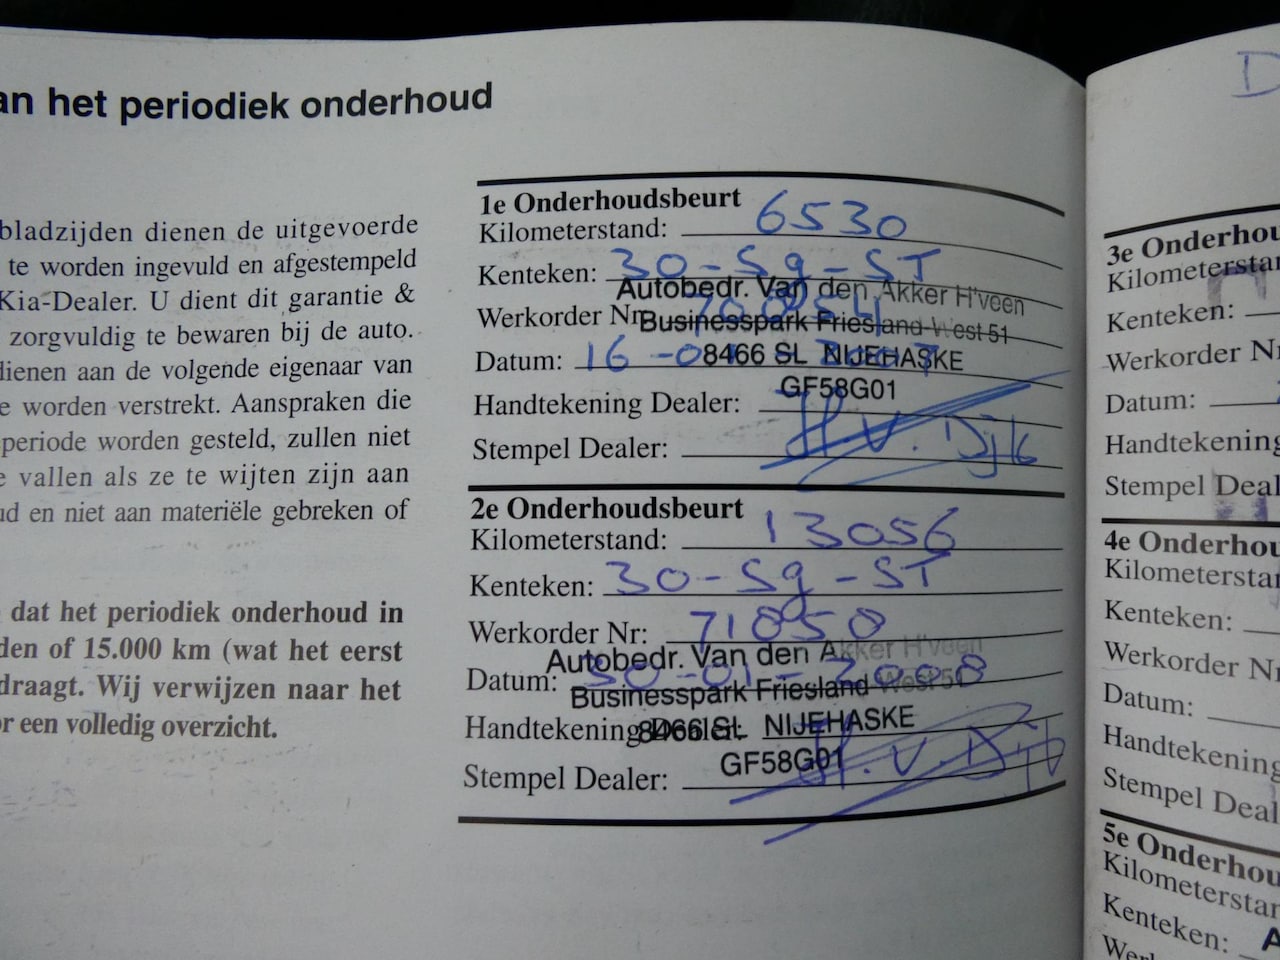 an het periodiek onderhoud
bladzijden dienen de uitgevoerde
te worden ingevuld en afgestempeld
Kia-Dealer. U dient dit garantie &
zorgvuldig te bewaren bij de auto.
dienen aan de volgende eigenaar van
e worden verstrekt. Aanspraken die
periode worden gesteld, zullen niet
e vallen als ze te wijten zijn aan
ud en niet aan materiële gebreken of
dat het periodiek onderhoud in
den of 15.000 km (wat het eerst
draagt. Wij verwijzen naar het
or een volledig overzicht.
1e Onderhoudsbeurt
Kilometerstand: 6530
Kenteken: 30-Sg-ST
Autobedr. Van den Akker H'veen
Werkorder Nr:
Businesspark Friesland-West 51
Datum: 16-0 2007
8466 SL NIJEHASKE
GF58G01
Handtekening Dealer:
Stempel Dealer: H.V. Dijk
2e Onderhoudsbeurt
Kilometerstand: 13056
Kenteken: 30-Sg-ST
Werkorder Nr: 71850
Autobedr. Van den Akker H'veen
Datum: 30-01-2008
Businesspark Friesland West 51
Handtekening Dealer:
8466 SL NIJEHASKE
GF58G01
Stempel Dealer: H.V. Dijk
D
3e Onderhou
Kilometerstan
Kenteken:
Werkorder Nr
Datum:
Handtekening
Stempel Deal
4e Onderhou
Kilometersta
Kenteken:
Werkorder Nr
Datum:
Handtekening
Stempel Deal
5e Onderhou
Kilometerstan
Kenteken: A
Werk